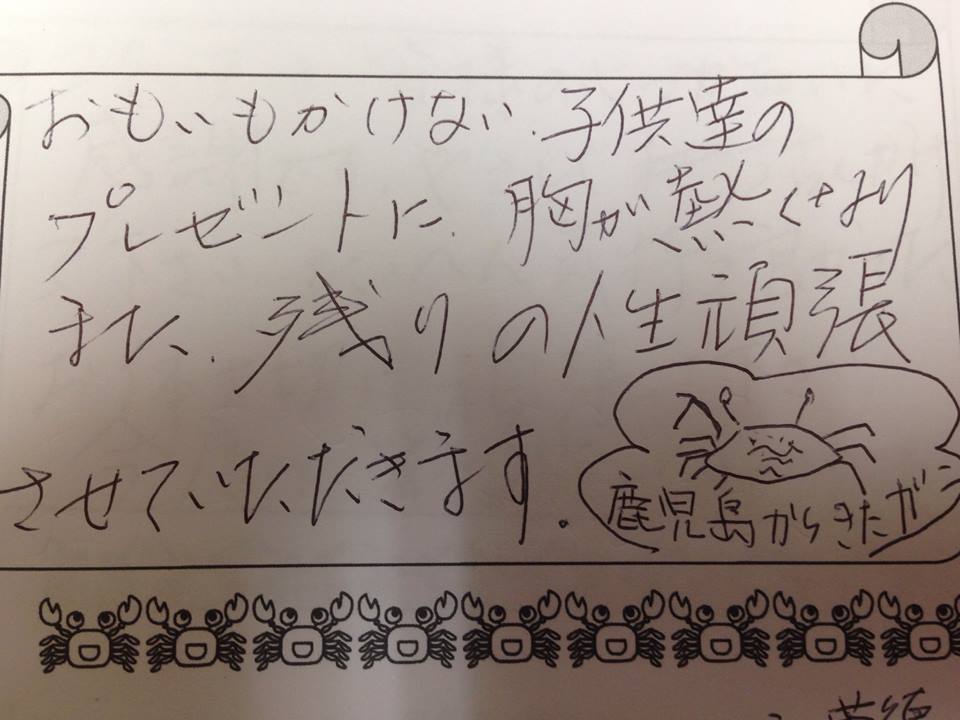 おもいもかけない、子供達の
プレゼントに、胸が熱くなり
また、残りの人生頑張
させていただきます。
鹿児島からきたガニ